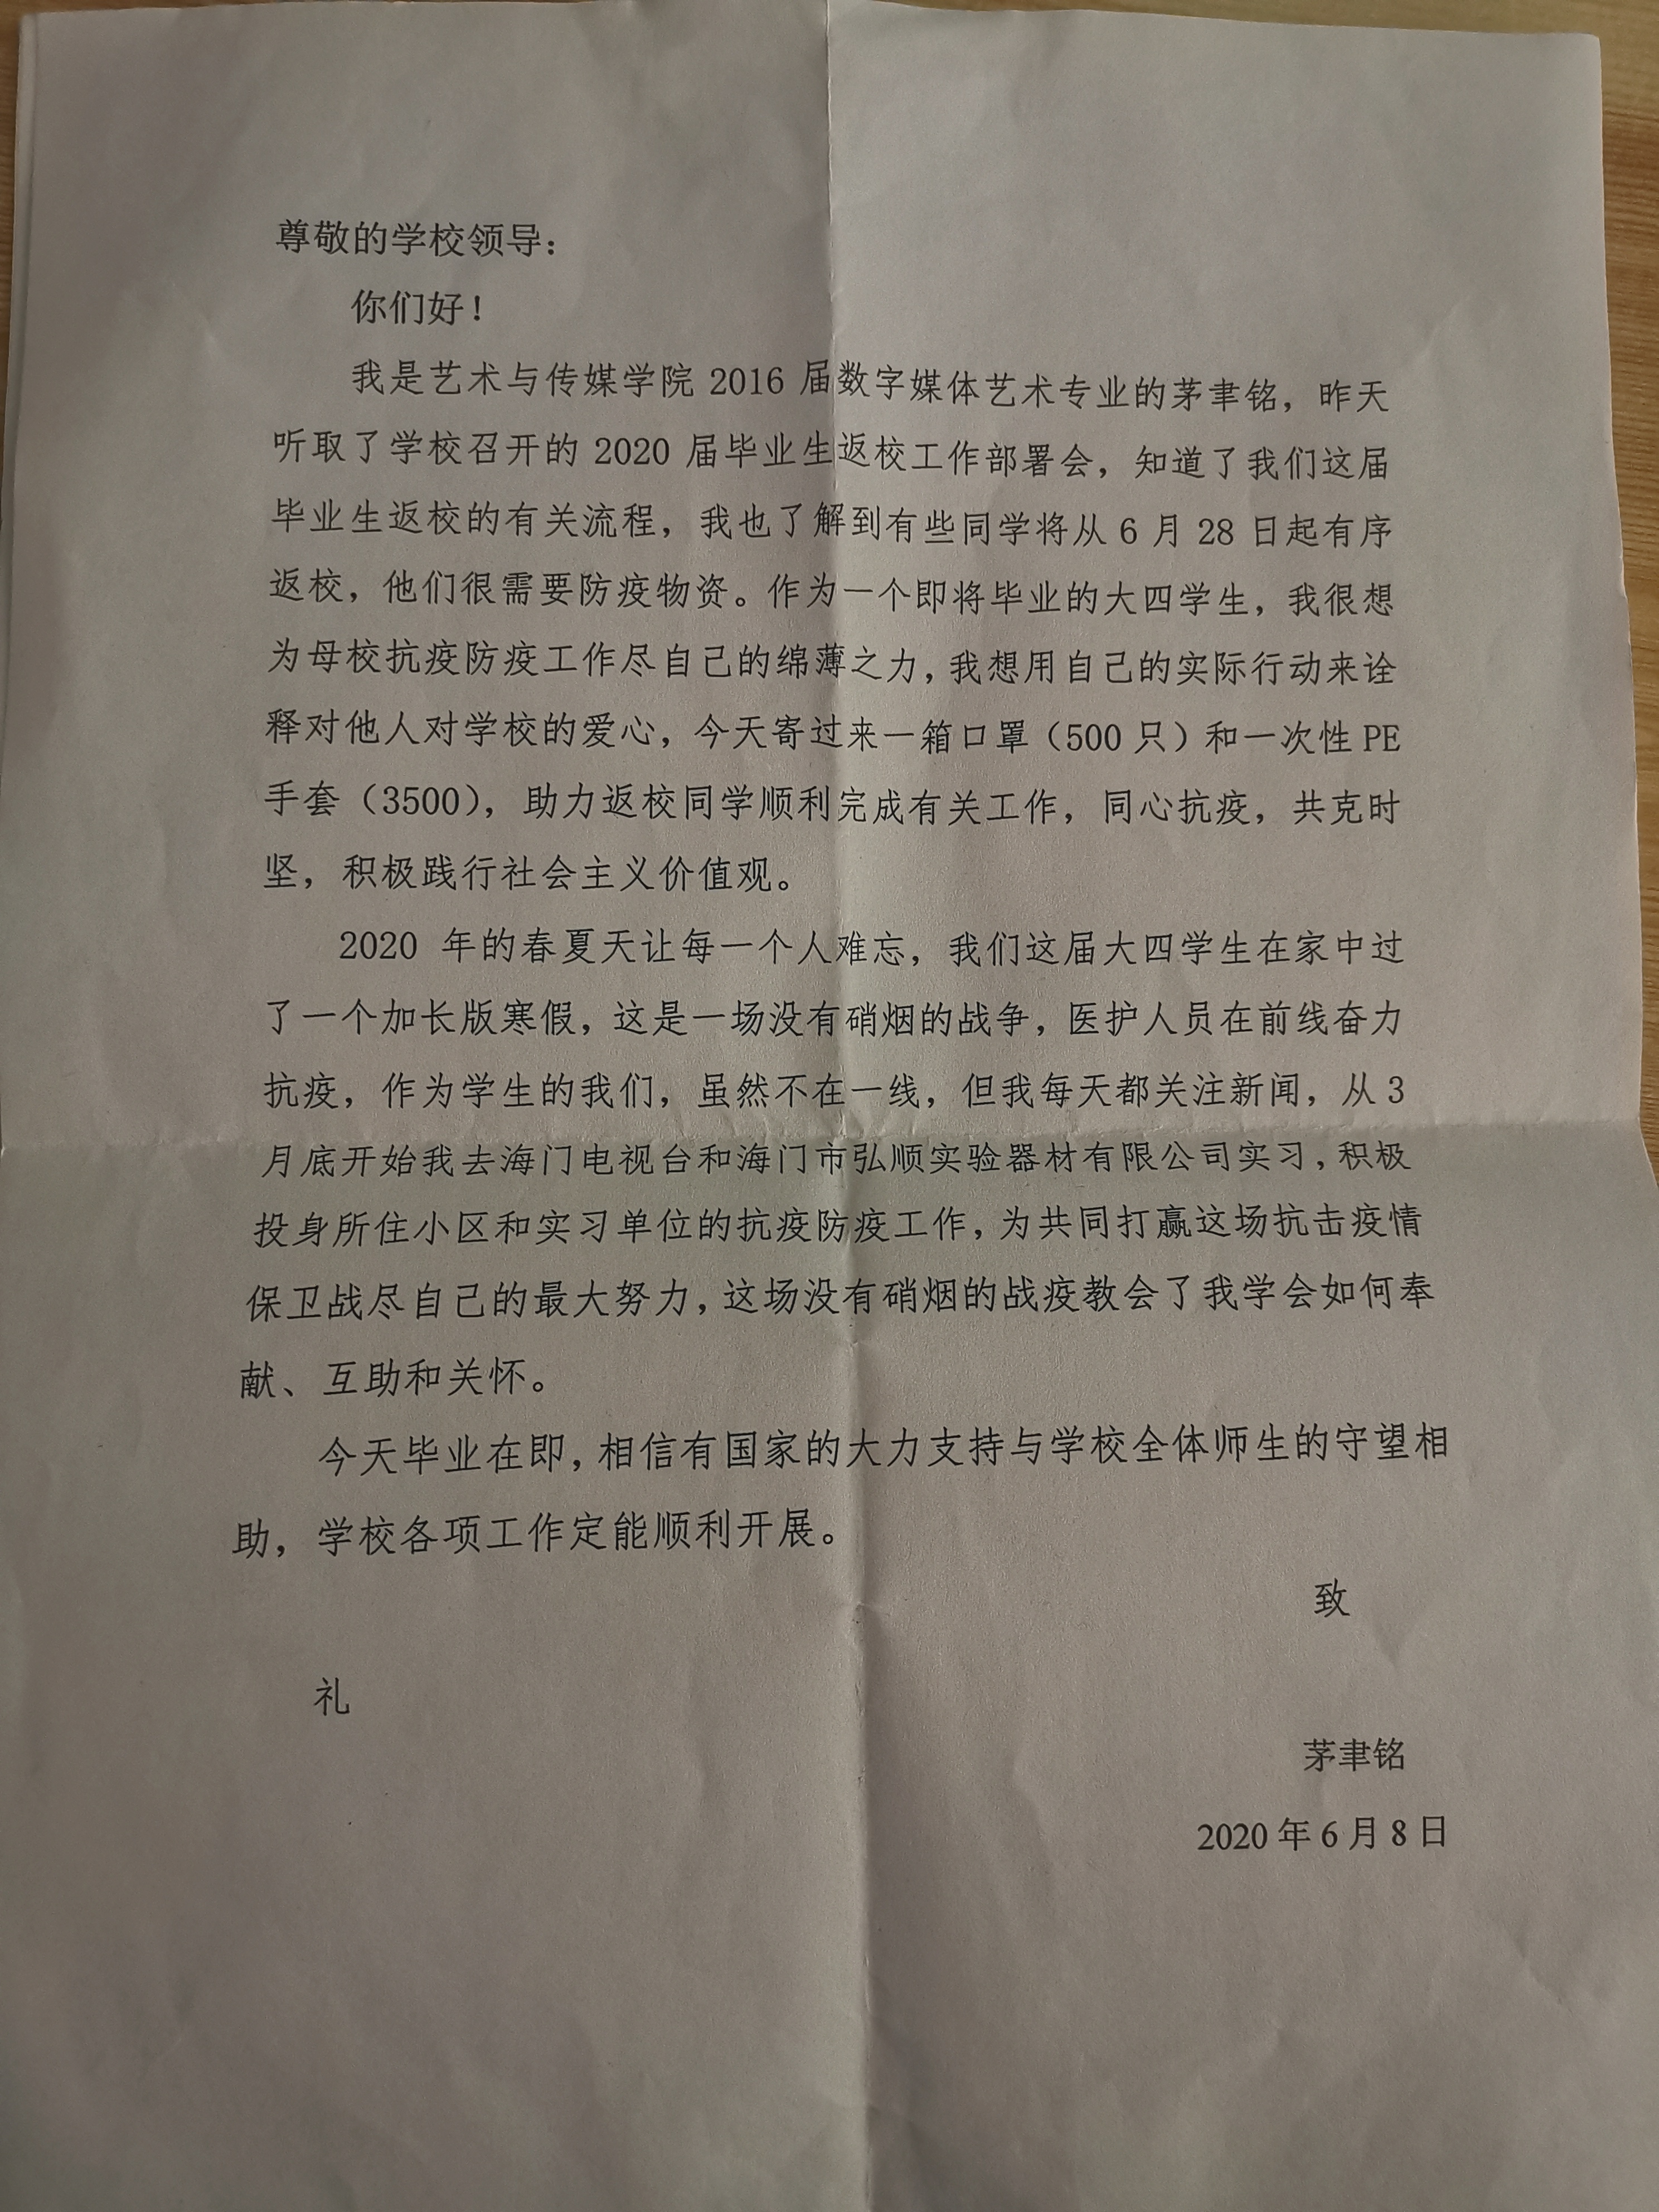 尊敬的学校领导：
你们好！
我是艺术与传媒学院 2016 届数字媒体艺术专业的茅聿铭，昨天
听取了学校召开的 2020 届毕业生返校工作部署会，知道了我们这届
毕业生返校的有关流程，我也了解到有些同学将从 6 月 28 日起有序
返校，他们很需要防疫物资。作为一个即将毕业的大四学生，我很想
为母校抗疫防疫工作尽自己的绵薄之力，我想用自己的实际行动来诠
释对他人对学校的爱心，今天寄过来一箱口罩（500 只）和一次性 PE
手套（3500），助力返校同学顺利完成有关工作，同心抗疫，共克时
坚，积极践行社会主义价值观。
2020 年的春夏天让每一个人难忘，我们这届大四学生在家中过
了一个加长版寒假，这是一场没有硝烟的战争，医护人员在前线奋力
抗疫，作为学生的我们，虽然不在一线，但我每天都关注新闻，从 3
月底开始我去海门电视台和海门市弘顺实验器材有限公司实习，积极
投身所住小区和实习单位的抗疫防疫工作，为共同打赢这场抗击疫情
保卫战尽自己的最大努力，这场没有硝烟的战疫教会了我学会如何奉
献、互助和关怀。
今天毕业在即，相信有国家的大力支持与学校全体师生的守望相
助，学校各项工作定能顺利开展。
致
礼
茅聿铭
2020 年 6 月 8 日